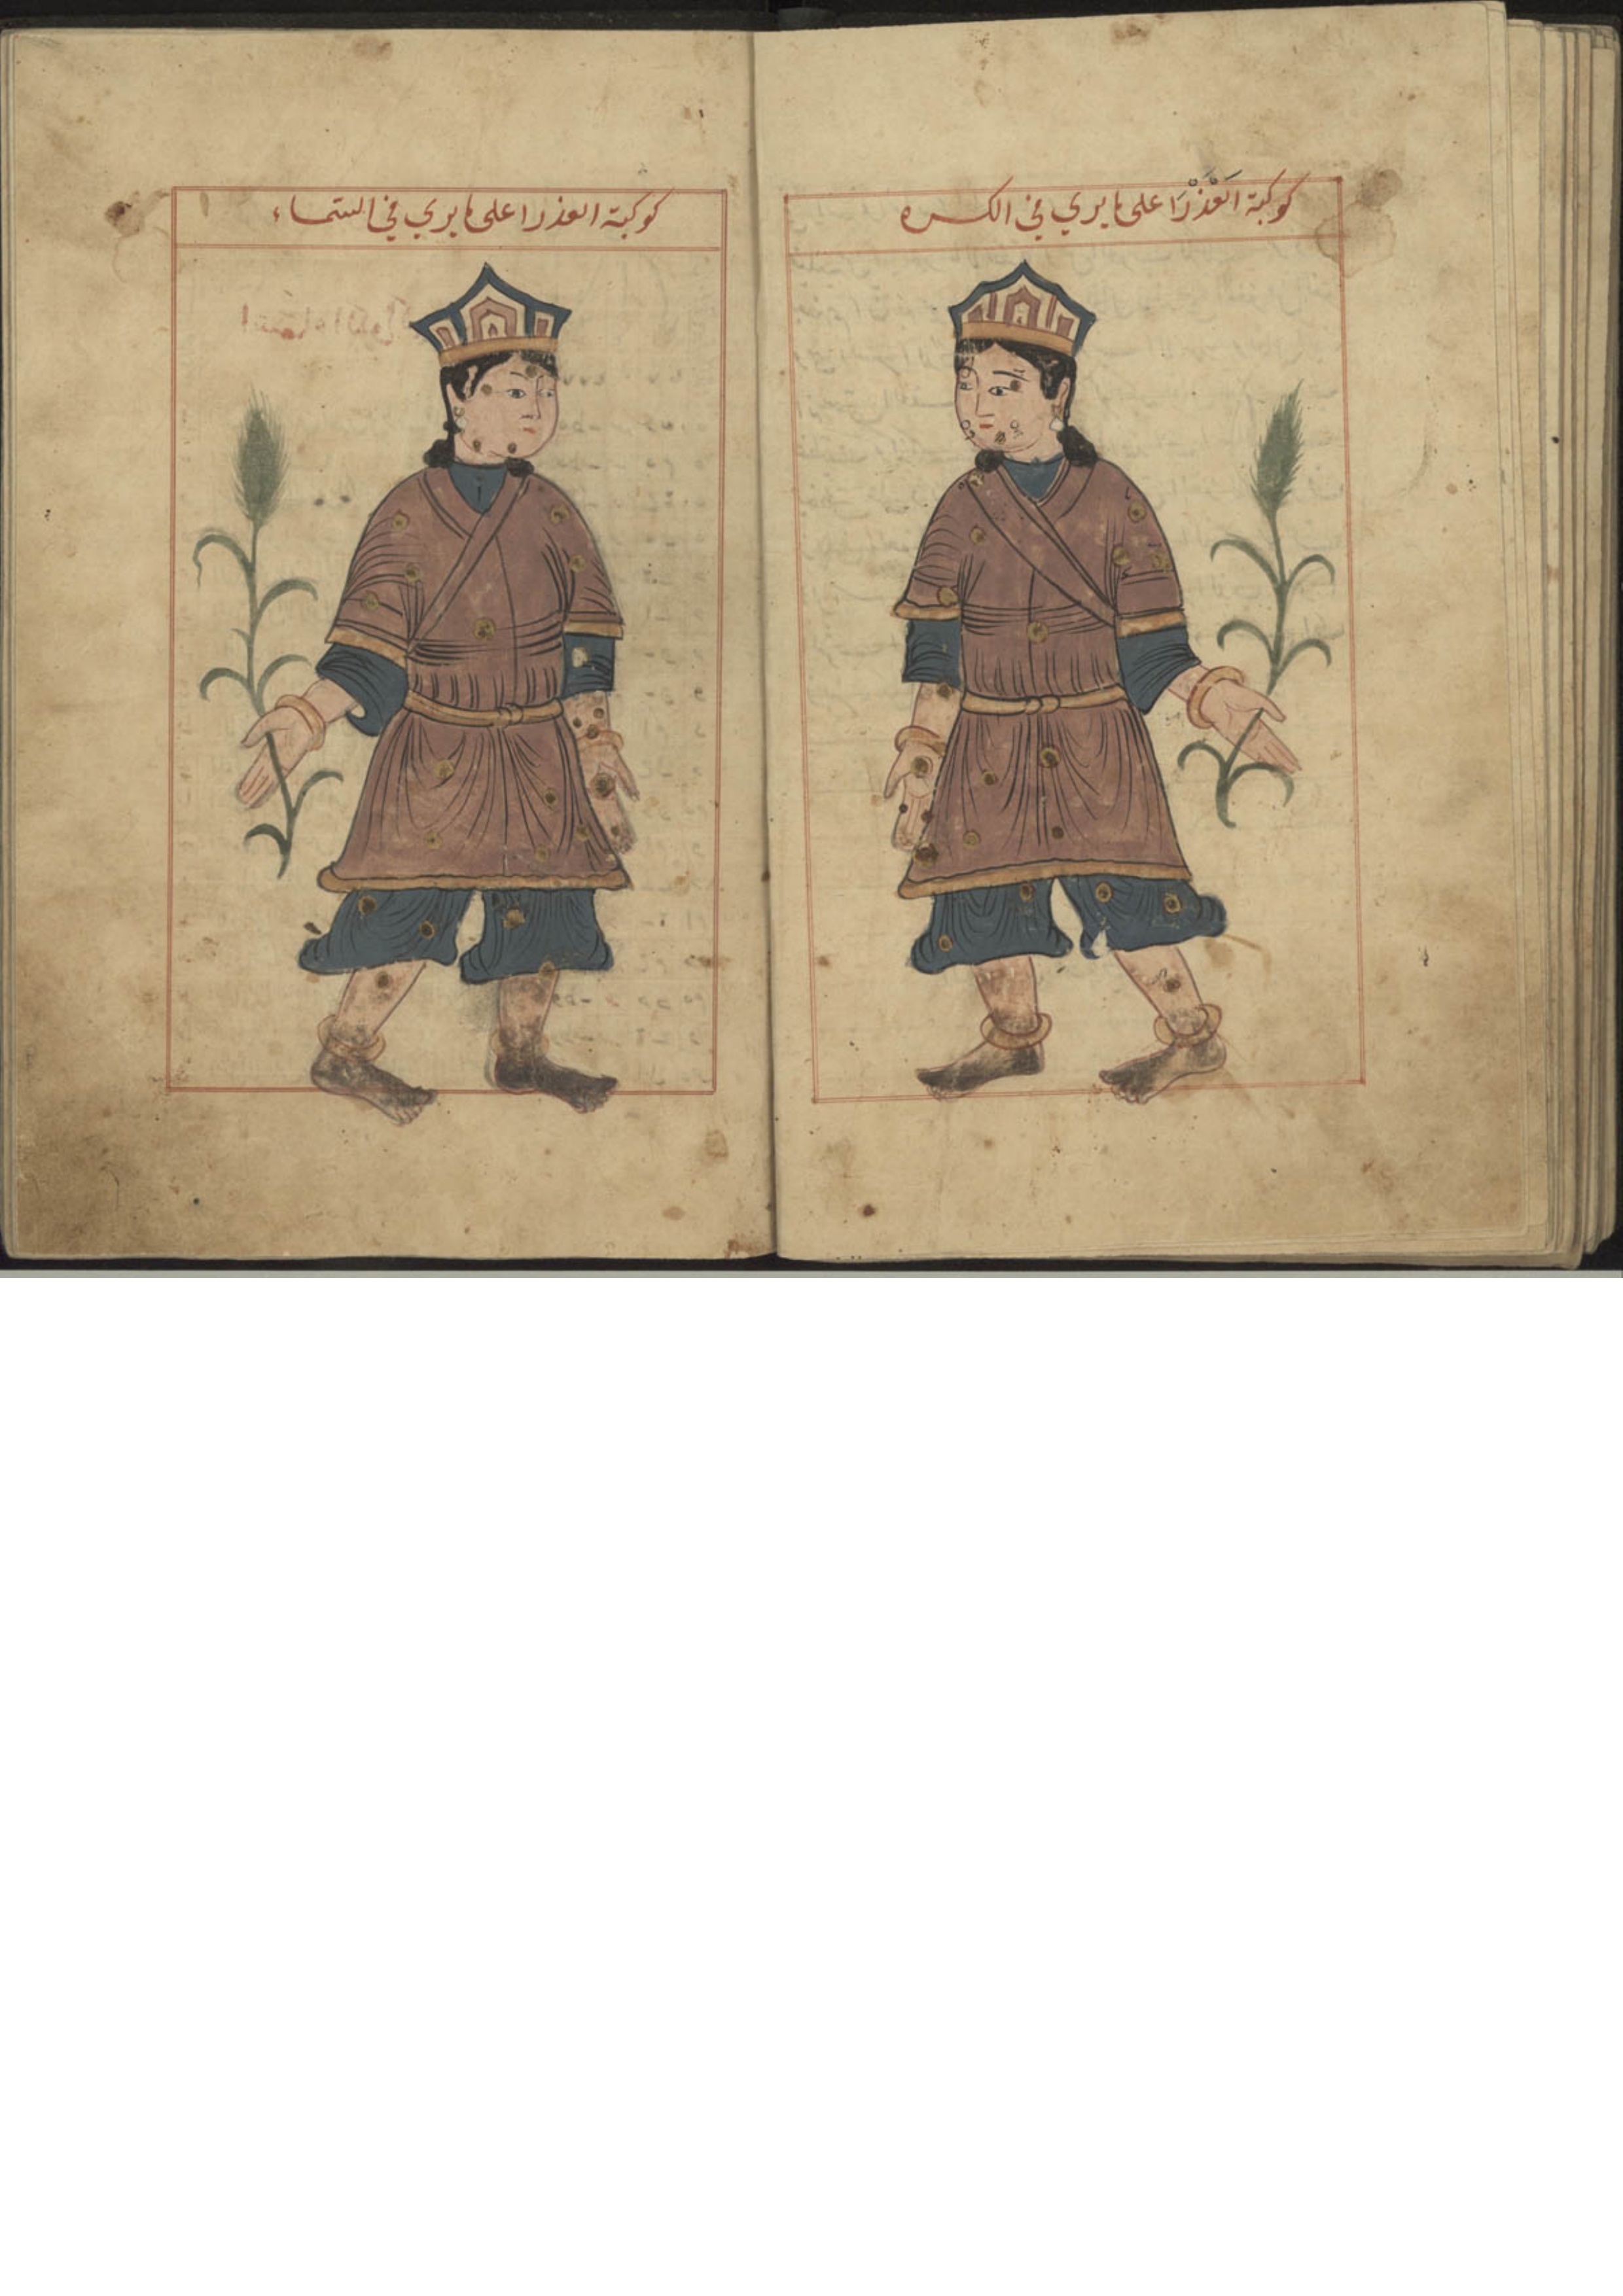 كوكبة العَذْرَا على ما يري في الكره
كوكبة العذرا على ما يري في السماء